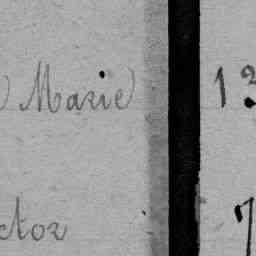 Marie 13
ctor 7